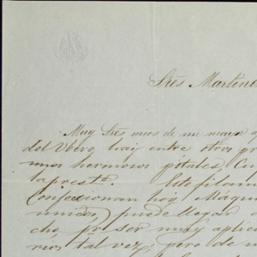 Sres Martine
Muy Sres mios de mi mayor a
del Vbero hay entre otros pr
unos hermosos pitales, Cu
la prest.a. Este filam
Confeccionan hoy Maqui
unidos) puede llegar a
cho por ser muy aplic
rios tal vez, pero de u